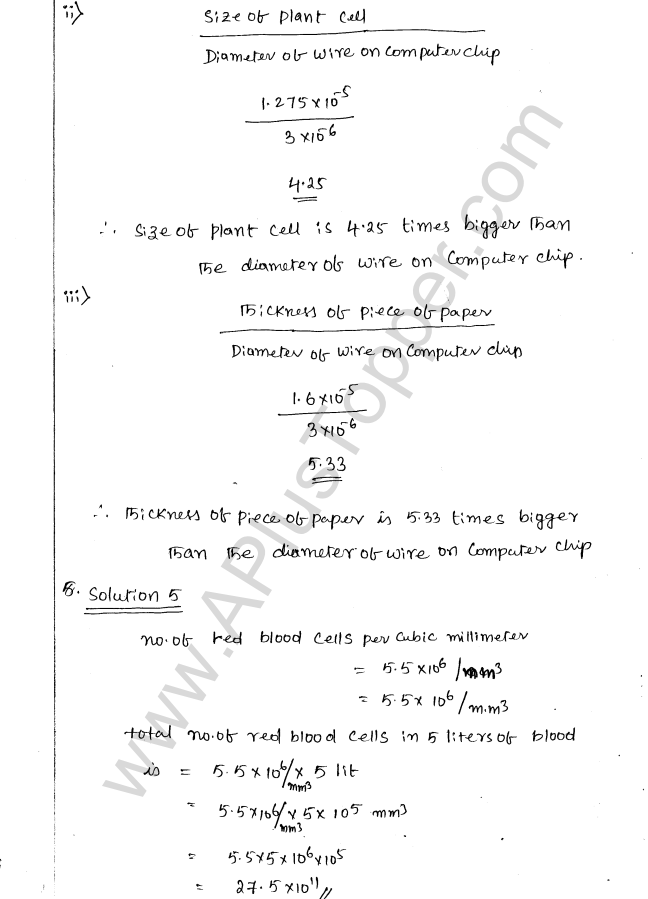 ii)
Size of plant cell
Diameter of wire on computer chip
1.275 × 10⁻⁵
3 × 10⁻⁶
4.25
∴ Size of plant cell is 4.25 times bigger than
the diameter of wire on computer chip.
iii)
Thickness of piece of paper
Diameter of wire on computer chip
1.6 × 10⁻⁵
3 × 10⁻⁶
5.33
∴ Thickness of piece of paper is 5.33 times bigger
than the diameter of wire on computer chip
5. Solution 5
no. of red blood cells per cubic millimeter
= 5.5 × 10⁶ / mm³
= 5.5 × 10⁶ / m.m³
total no. of red blood cells in 5 liters of blood
is = 5.5 × 10⁶/mm³ × 5 lit
= 5.5 × 10⁶/mm³ × 5 × 10⁵ mm³
= 5.5 × 5 × 10⁶ × 10⁵
= 27.5 × 10¹¹ //
www.APlusTopper.com